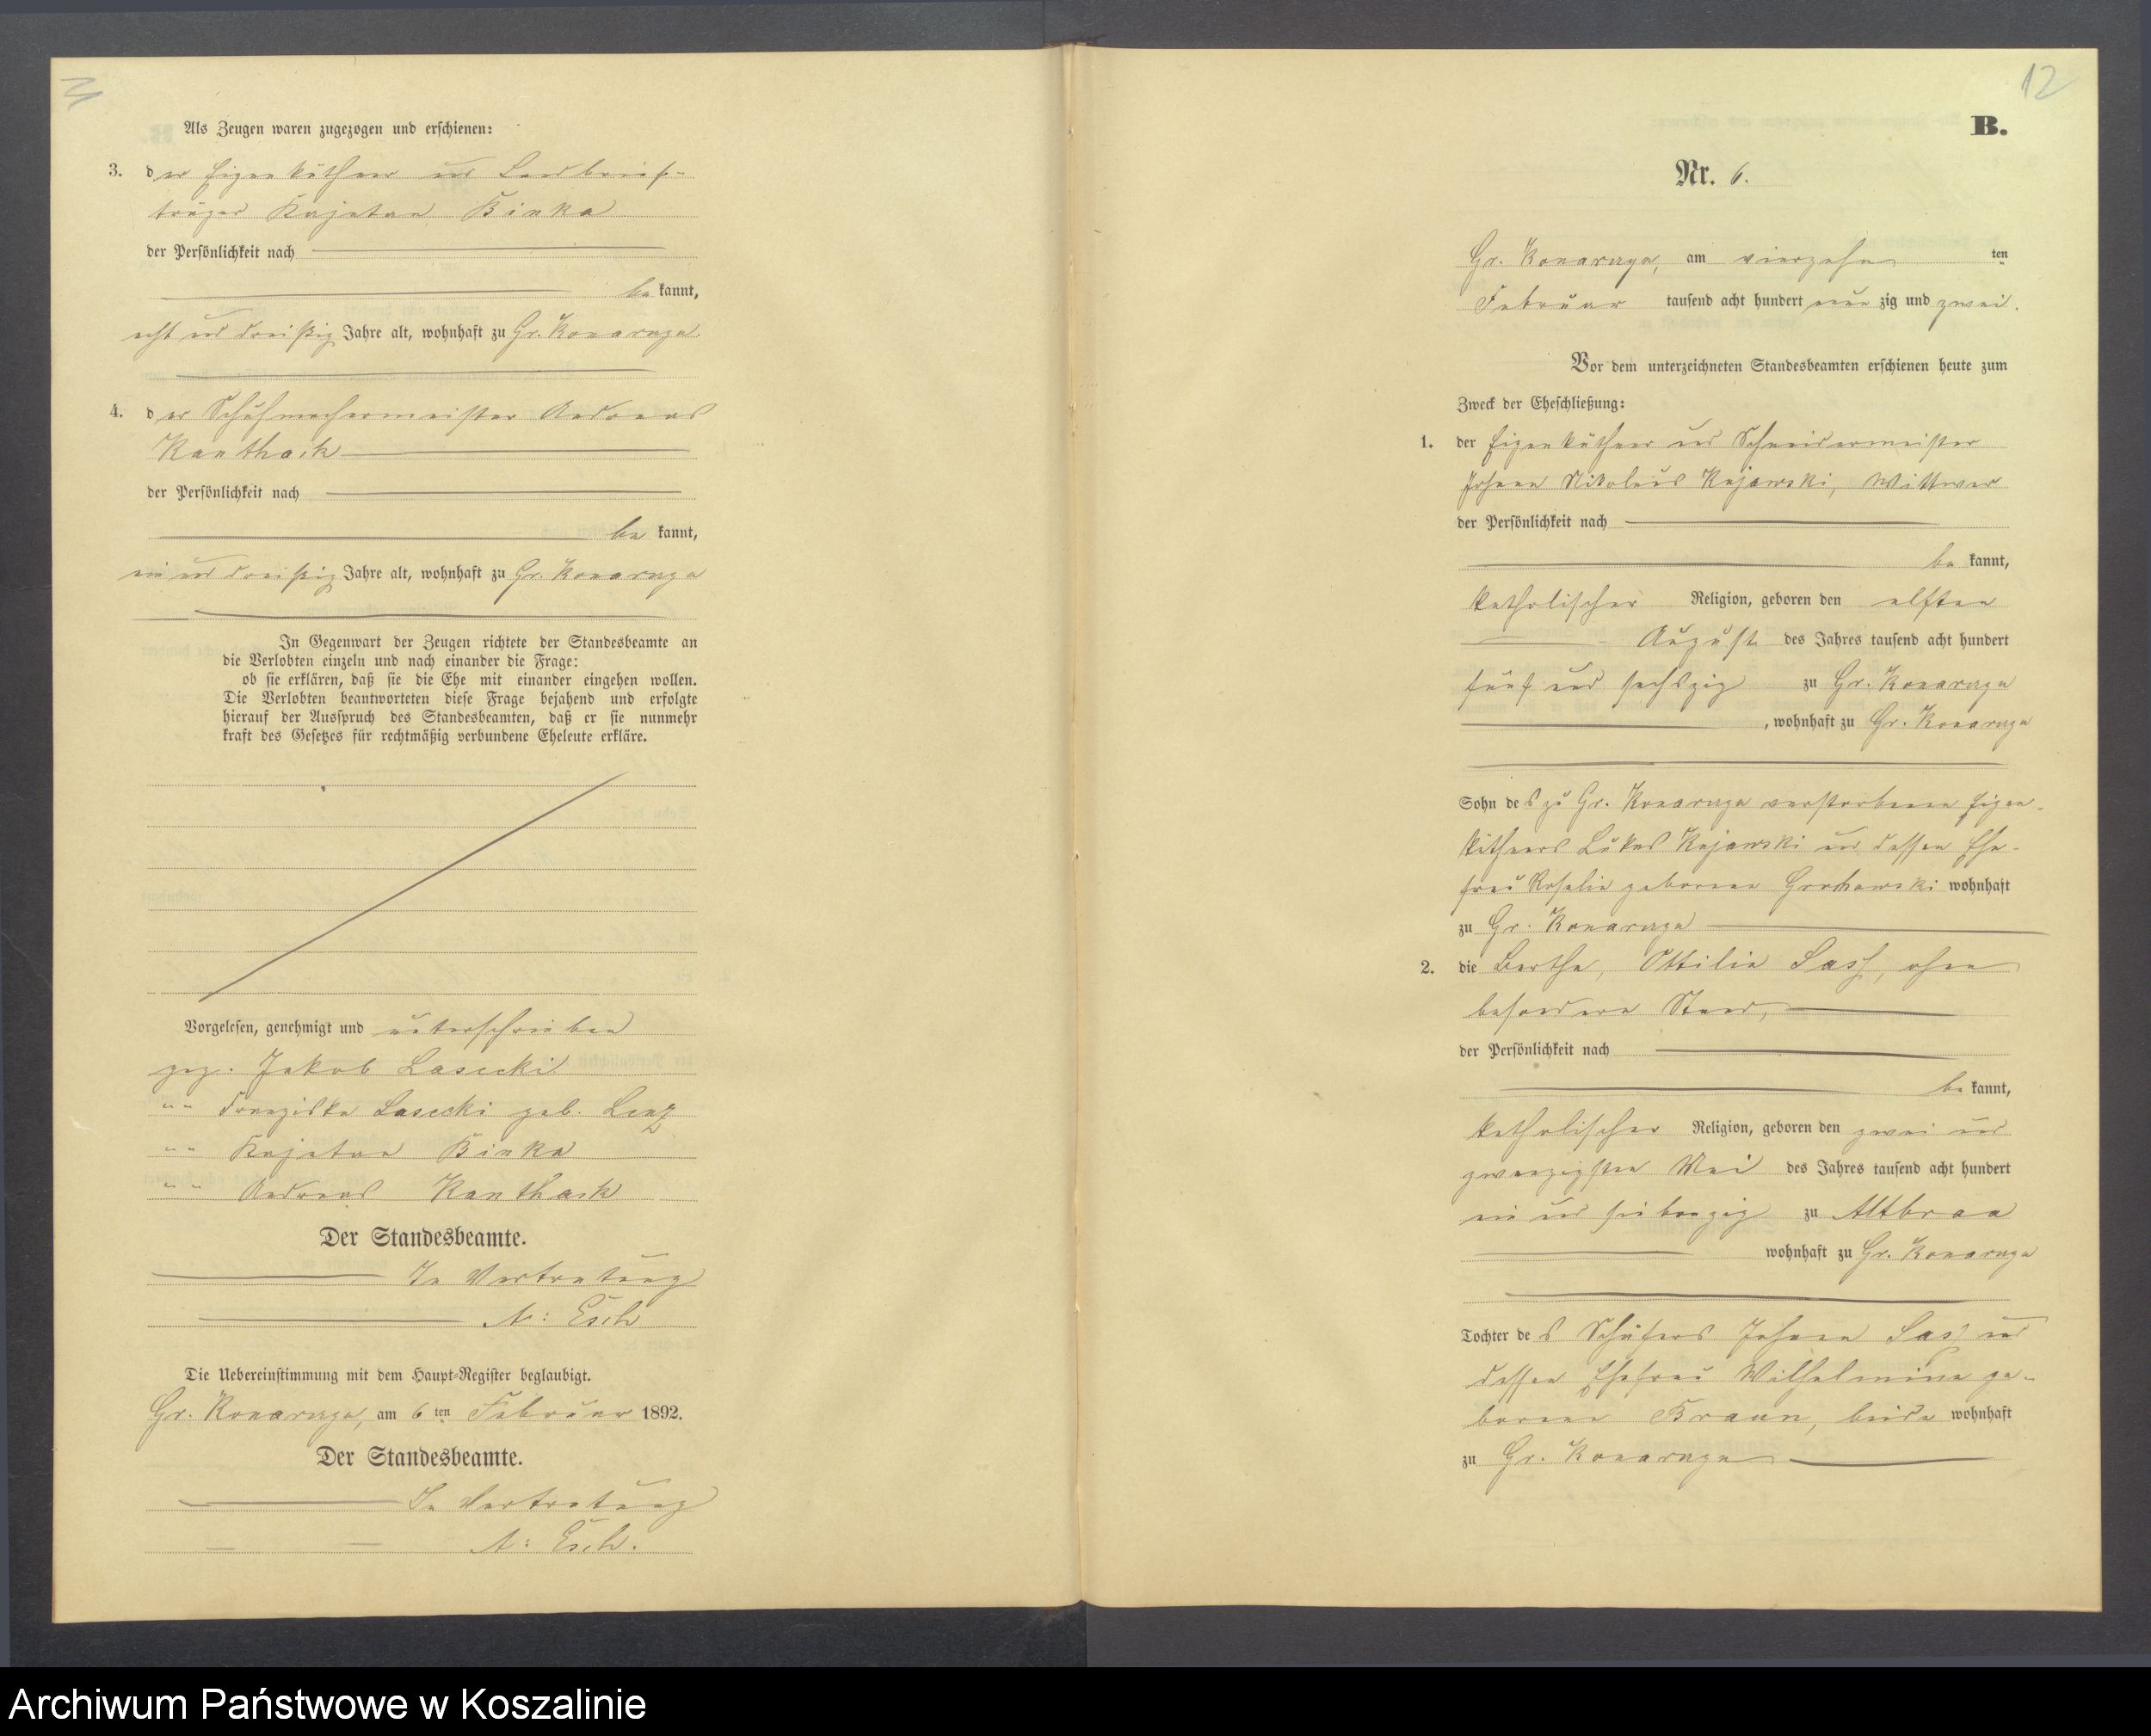 Als Zeugen waren zugezogen und erschienen:
3. der Eigenkäthner und Landbrief-
träger Kajetan Binka
der Persönlichkeit nach
be kannt,
acht und dreißig Jahre alt, wohnhaft zu Gr. Konarzyn
4. der Schuhmachermeister Andreas
Kanthack
der Persönlichkeit nach
be kannt,
ein und dreißig Jahre alt, wohnhaft zu Gr. Konarzyn
In Gegenwart der Zeugen richtete der Standesbeamte an
die Verlobten einzeln und nach einander die Frage:
ob sie erklären, daß sie die Ehe mit einander eingehen wollen.
Die Verlobten beantworteten diese Frage bejahend und erfolgte
hierauf der Ausspruch des Standesbeamten, daß er sie nunmehr
kraft des Gesetzes für rechtmäßig verbundene Eheleute erkläre.
Vorgelesen, genehmigt und unterschrieben
gez. Jakob Lasecki
"" Franziska Lasecki geb. Lenz
"" Kajetan Binka
"" Andreas Kanthack
Der Standesbeamte.
In Vertretung
A: Esch
Die Uebereinstimmung mit dem Haupt-Register beglaubigt.
Gr. Konarzyn, am 6 ten Februar 1892.
Der Standesbeamte.
In Vertretung
A: Esch.
12
B.
Nr. 6.
Gr. Konarzyn, am vierzehn ten
Februar tausend acht hundert neun zig und zwei.
Vor dem unterzeichneten Standesbeamten erschienen heute zum
Zweck der Eheschließung:
1. der Eigenkäthner und Schneidermeister
Johann Nikolaus Kujawski, Wittwer
der Persönlichkeit nach
be kannt,
katholischer Religion, geboren den elften
August des Jahres tausend acht hundert
fünf und sechszig zu Gr. Konarzyn
, wohnhaft zu Gr. Konarzyn
Sohn des zu Gr. Konarzyn verstorbenen Eigen-
käthners Lukas Kujawski und dessen Ehe-
frau Rosalie geborene Grochowski wohnhaft
zu Gr. Konarzyn
2. die Bertha, Ottilie Saß, ohne
besonderen Stand,
der Persönlichkeit nach
be kannt,
katholischer Religion, geboren den zwei und
zwanzigsten Mai des Jahres tausend acht hundert
ein und siebenzig zu Altbraa
wohnhaft zu Gr. Konarzyn
Tochter des Schäfers Johann Saß und
dessen Ehefrau Wilhelmine ge-
borene Braun, beide wohnhaft
zu Gr. Konarzyn
Archiwum Państwowe w Koszalinie